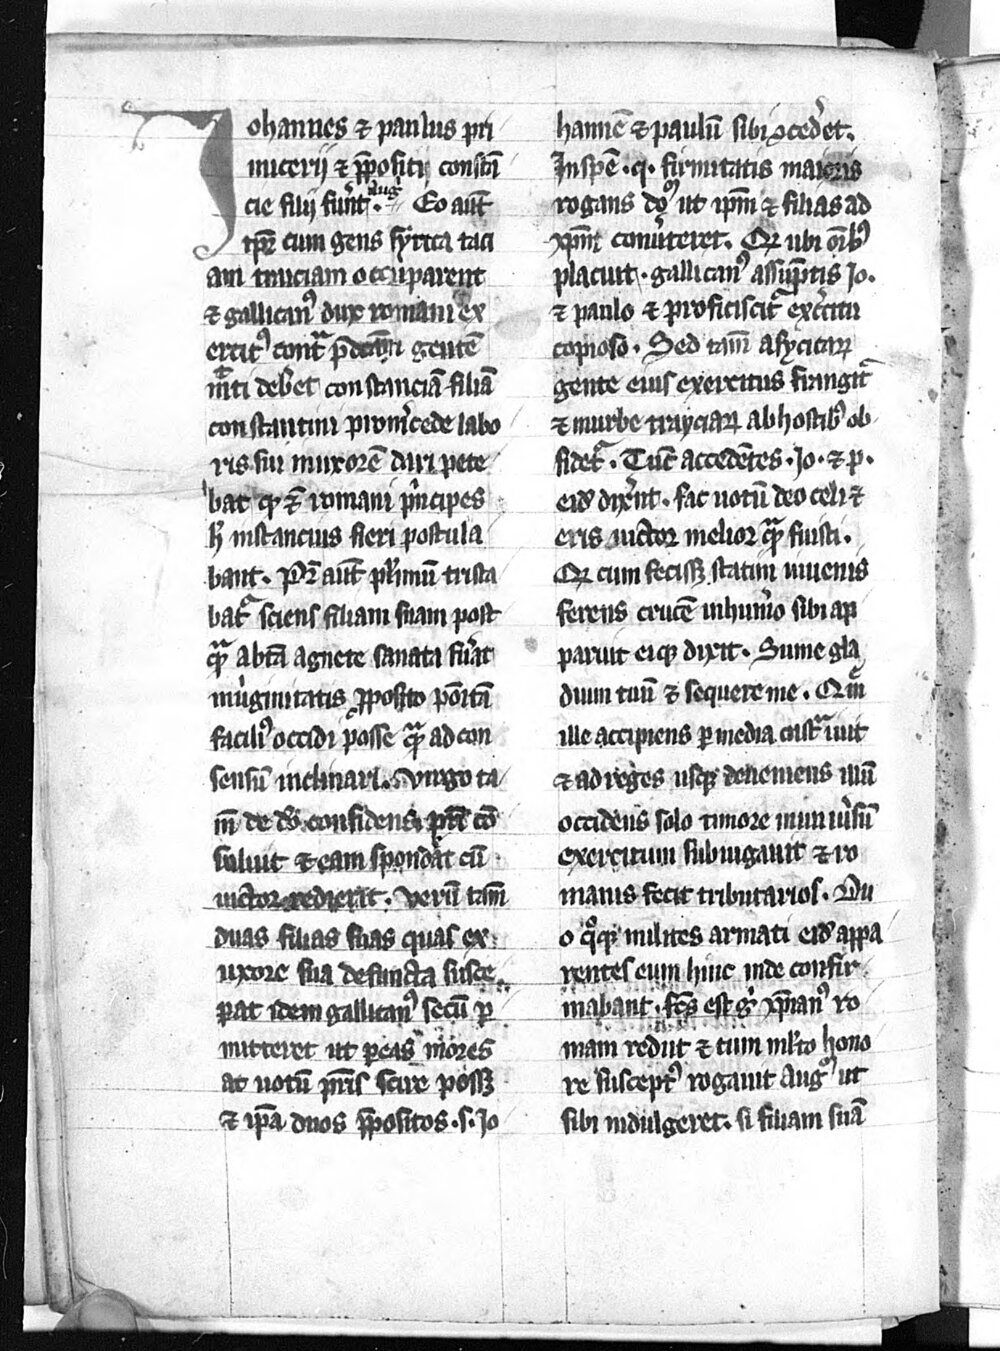 Johannes ⁊ paulus pri
micerij ⁊ p̄positi constā
cie filij fuer̄t aug᷑. Eo aūt
tp̄r cum gens syttca taci
am traciam occuparent
⁊ gallican᷒ dux romani ex
ercit᷒ contª p̄dcām gentē
mitti deb̄et constanciā filiā
constantini pro mercede labo
ris sui in uxorē dari pete
bat qd ⁊ romani principes
h̄ instancius fieri postula
bant. Pr̄ aūt plimū trista
bat᷑ sciens filiam suam post
qª a btā agnete sanata fūat
in uirginitatis p̄posito portā
facili᷒ occidi posse qª ad con
sensū inclinari. Virgo ta
m̄ de dō confidens prī cō
suluit ⁊ eam spondat cū
uictor redierat. Verū tam̄
duas filias suas quas ex
uxore sua defuncta susce
perat idem gallican᷒ secū p
mitteret ut p eas mores
ac uotū pris scire poss᷑
⁊ ip̄a duos p̄positos .s. Jo
hannē ⁊ paulū sibi ꝯced̄et.
In spē .q. firmitatis maioris
rogans do᷒ ut ip̄m ⁊ filias ad
xp̄m conu̾teret. Qd ubi oīb᷒
placuit. gallican᷒ assūptis Jo.
⁊ paulo ⁊ proficiscit᷑ ex̾citu
copioso. Sed tam̄ a syticar᷑
gente eius exercitus frangit᷑
⁊ in urbe trayciar᷑ ab hostib᷒ ob
sidet᷑. Tūc accedētes .Jo. ⁊ p.
eid dix̾nt. fac uotū deo celi ⁊
eris uictor melior qª fuisti.
Qd cum feciss᷑ statim iuuenis
ferens crucē in hum̾o sibi ap
paruit eiq᷑ dixit. Sume gla
dium tuū ⁊ sequere me. Qm̄
ille accipiens p media castª iuit
⁊ ad reges usq᷑ deueniens illū
occidens solo timore in uniu̾sū
exercitum subiugauit ⁊ ro
manis fecit tributarios. Du
o qoq᷑ milites armati eid appa
rentes eum hinc inde confir
mabant. fc̄s est g̊ xp̄ian᷒ ro
mam rediit ⁊ cum m̾lto hono
re suscept᷒ rogauit aug᷒ ut
sibi indulgeret. si filiam suā